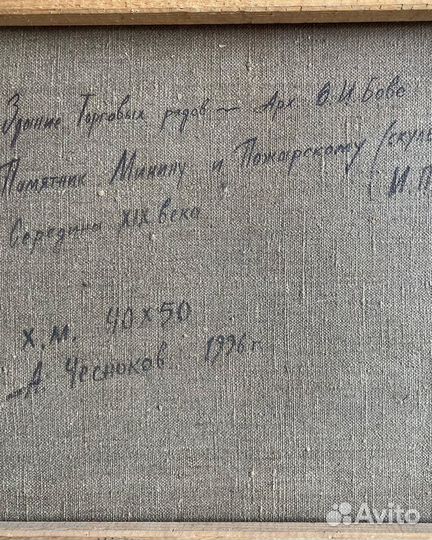 Здание Торговых рядов — Арх О.И. Бове
Памятник Минину и Пожарскому (скуль
И.П
Середина XIX века
х.м. 40х50
А. Чесноков 1996 г
Avito